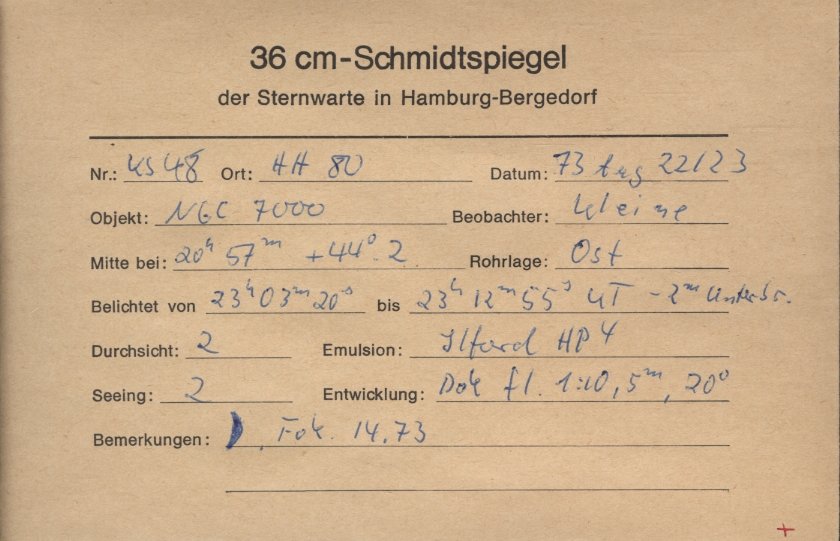 36 cm-Schmidtspiegel
der Sternwarte in Hamburg-Bergedorf
Nr.: KS 48 Ort: HH 80 Datum: 73 Aug 22/23
Objekt: NGC 7000 Beobachter:
Mitte bei: 20h 57m +44°.2 Rohrlage: Ost
Belichtet von 23h 03m 20s bis 23h 12m 55s UT - 2m Unterbr.
Durchsicht: 2 Emulsion: Ilford HP4
Seeing: 2 Entwicklung: Dok fl. 1:10, 5m, 20°
Bemerkungen: ), Fok. 14.73
+